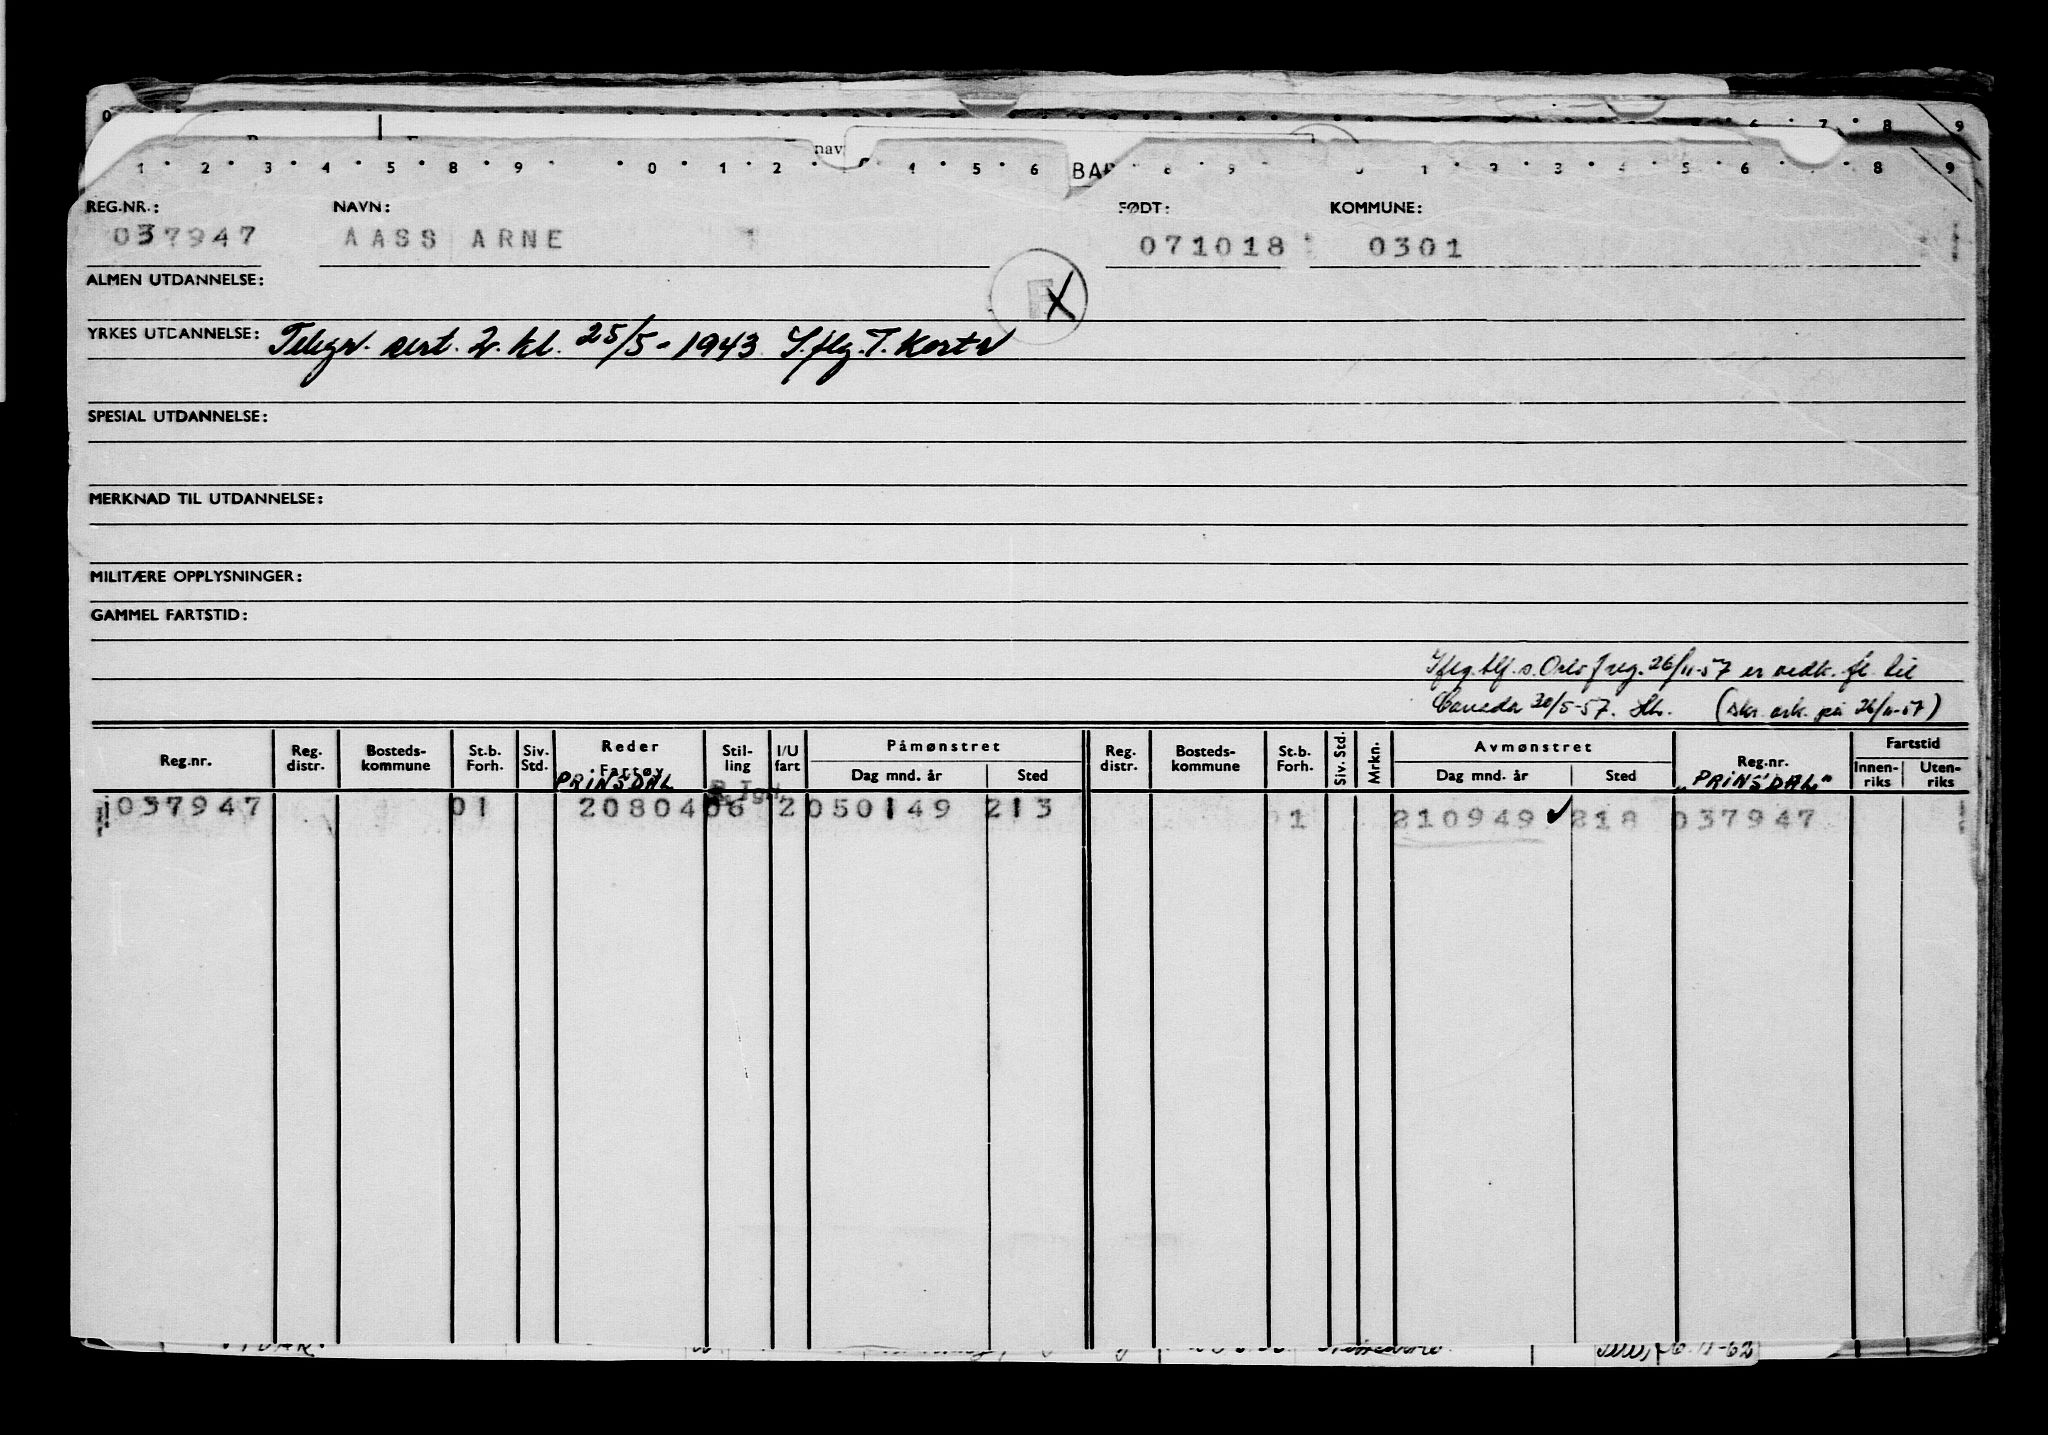 0 7 8 9
nav
1 2 3 4 5 8 9 0 1 2 4 5 6 BA 8 9 0 1 2 3 4 5 6 8 9
REG.NR.: NAVN: FØDT: KOMMUNE:
037947 AASS ARNE 071018 0301
ALMEN UTDANNELSE:
YRKES UTDANNELSE: Telegr. sert. 2. kl. 25/5-1943 I.flg. T. Kort
SPESIAL UTDANNELSE:
MERKNAD TIL UTDANNELSE:
MILITÆRE OPPLYSNINGER:
GAMMEL FARTSTID:
Iflg. tlf. s. Oslo freg. 26/11-57 er vedk. fl. til
Canada 30/5-57. (skr. ark. på 26/11-57)
Reg.nr. Reg. distr. Bosteds-kommune St.b. Forh. Siv. Std. Reder Fartøy Stil-ling I/U fart Påmønstret Dag mnd. år Sted Reg. distr. Bosteds-kommune St.b. Forh. Siv. Std. Mrkn. Avmønstret Dag mnd. år Sted Reg.nr. Fartstid Innen-riks Uten-riks
PRINSDAL "PRINSDAL"
037947 01 2080406 2 050149 213 1 210949 218 037947
6.11-62